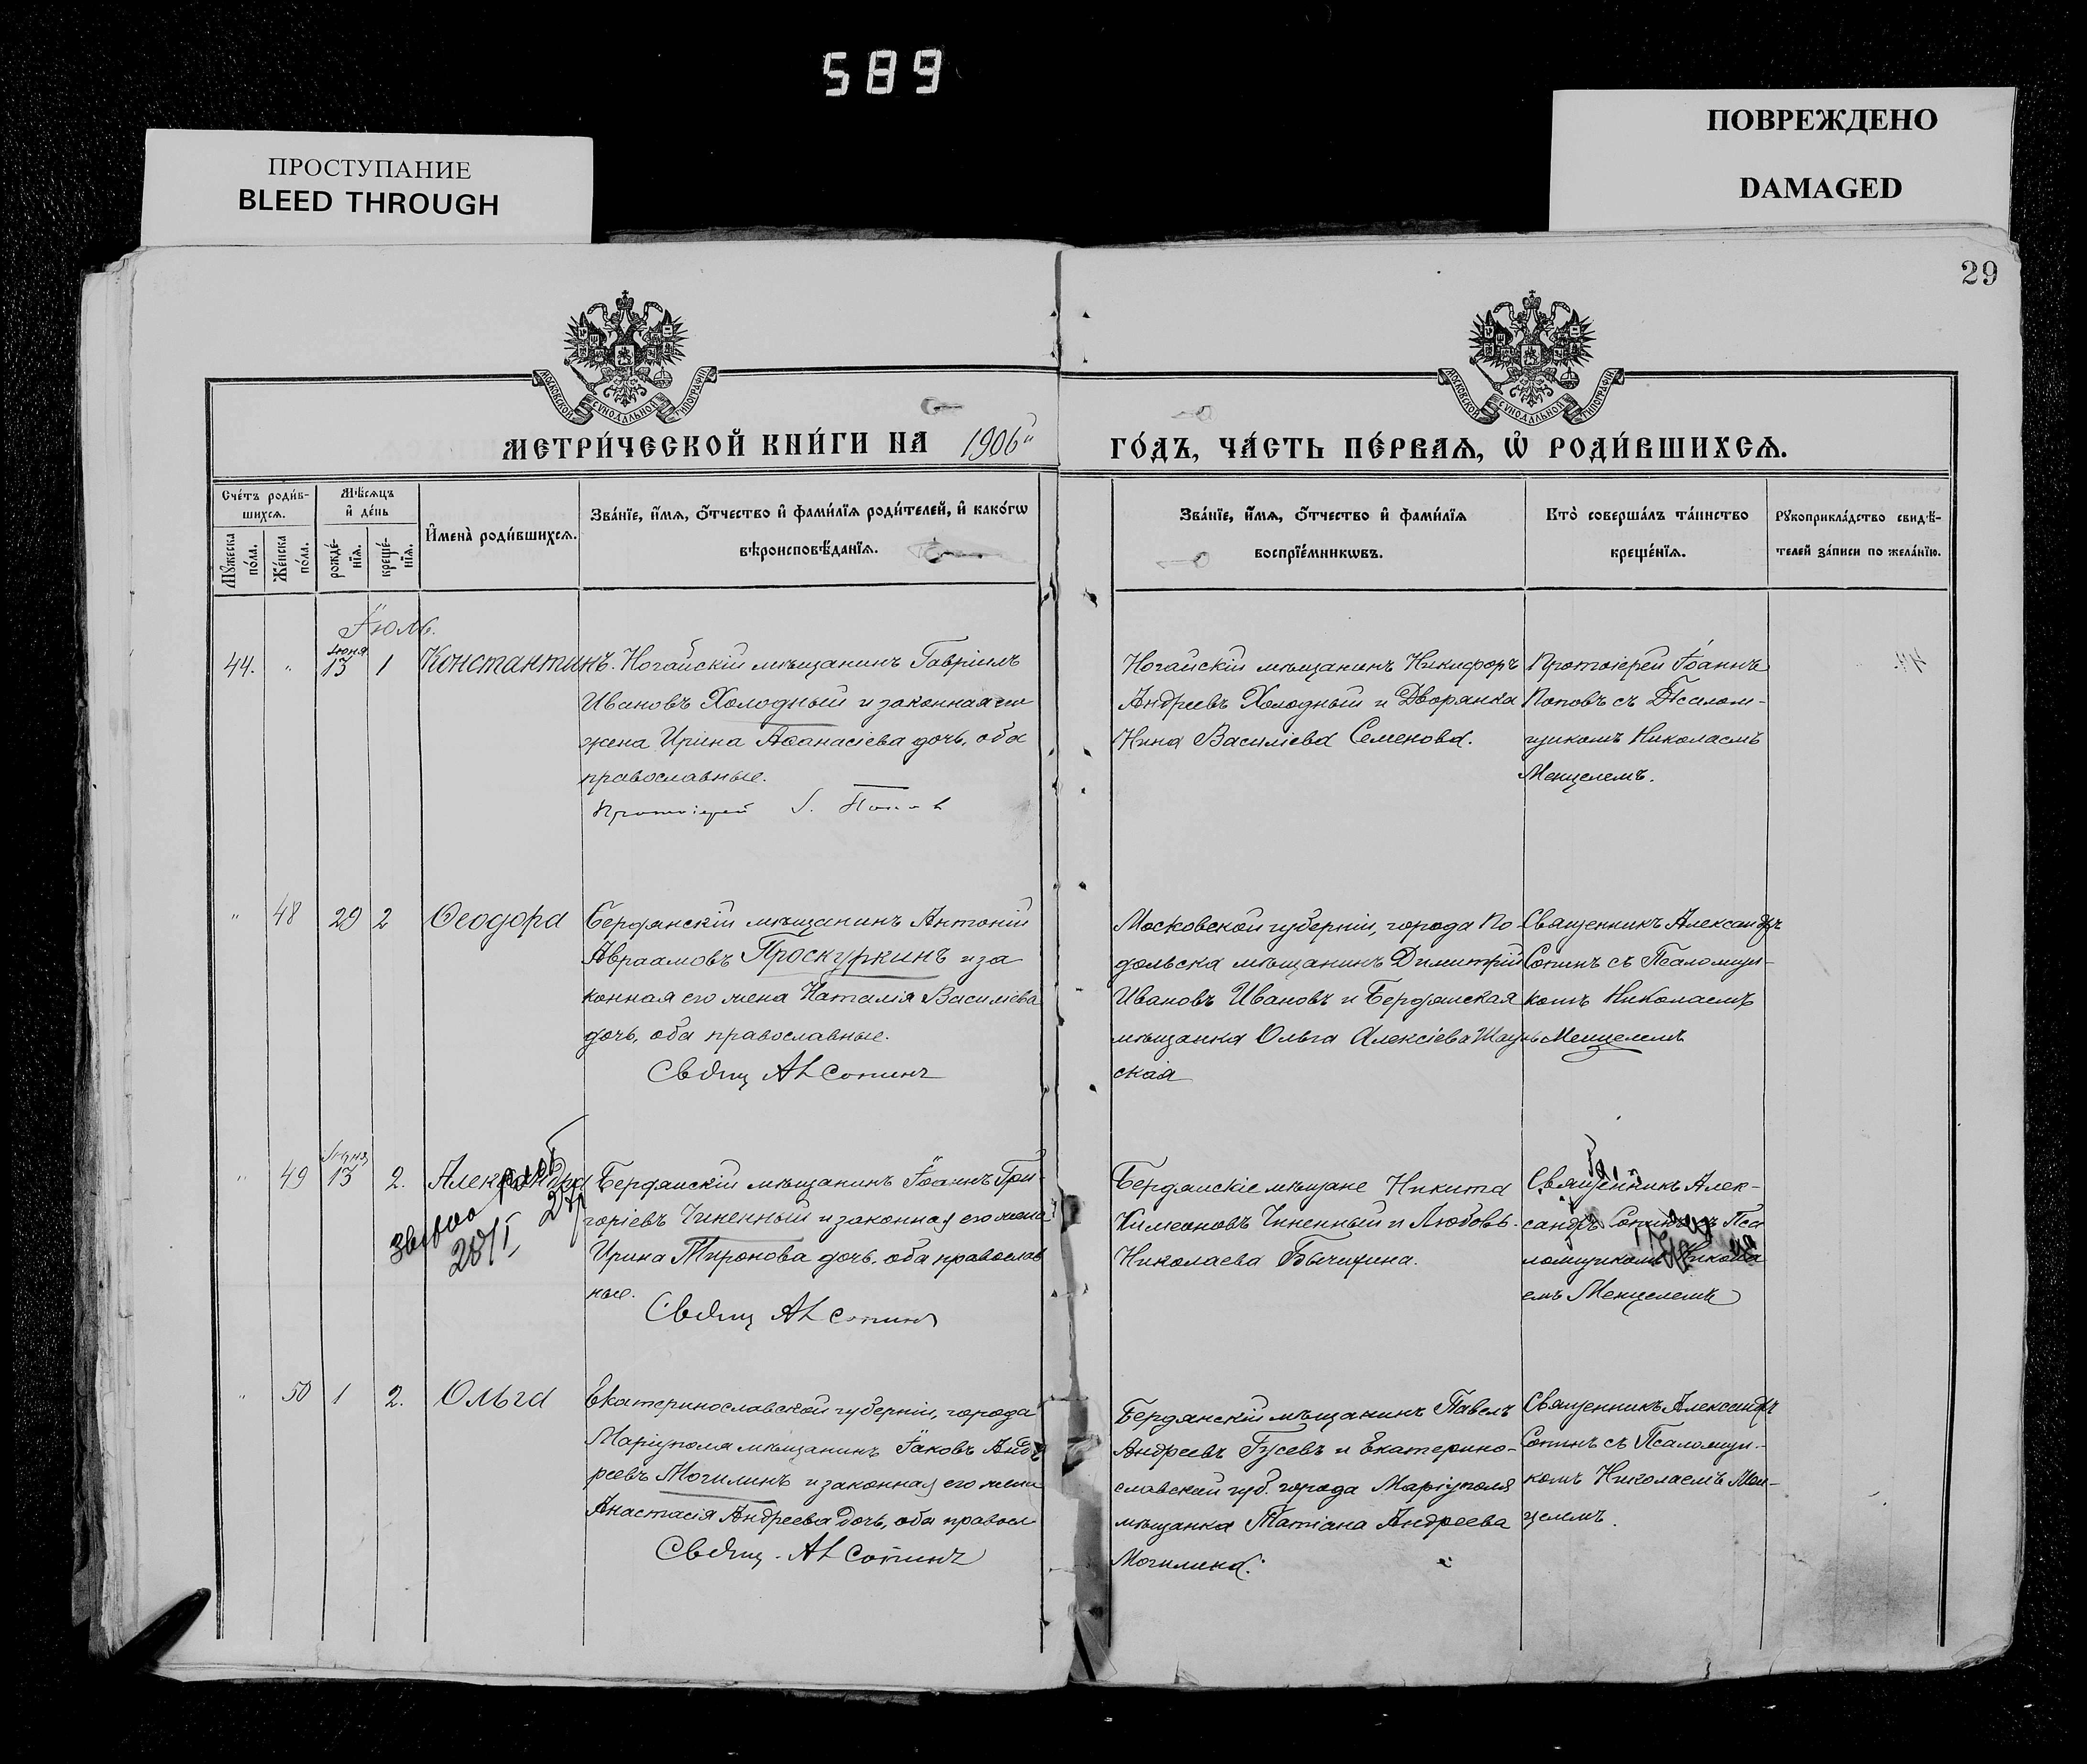 589
ПРОСТУПАНИЕ
BLEED THROUGH
ПОВРЕЖДЕНО
DAMAGED
29
МОСКОВСКОЙ СѴНОДАЛЬНОЙ ТИПОГРАФІИ
МОСКОВСКОЙ СѴНОДАЛЬНОЙ ТИПОГРАФІИ
МЕТРИ́ЧЕСКОЙ КНИ́ГИ НА 1906
ГО́ДЪ, ЧА́СТЬ ПЕ́РВАѦ, Ѡ҆ РОДИ́ВШИХСѦ.
Сче́тъ роди́в-
шихсѧ.
Мꙋ́жеска по́ла.
Же́нска по́ла.
Мѣ́сѧцъ
и҆ де́нь
рожде́-
нїѧ.
креще́-
нїѧ.
И҆мена̀ роди́вшихсѧ.
Зва́нїе, и҆́мѧ, ѻ҆́тчество и҆ фами́лїѧ роди́телей, и҆ како́гѡ
вѣроисповѣ́данїѧ.
Зва́нїе, и҆́мѧ, ѻ҆́тчество и҆ фами́лїѧ
воспрїе́мникѡвъ.
Кто̀ соверша́лъ та́инство
креще́нїѧ.
Рꙋкоприкла́дство свидѣ́-
телей за́писи по жела́нїю.
Іюль.
44. " Іюня 13 1 Константинъ.
Ногайскій мѣщанинъ Гавріилъ
Ивановъ Холодный и законная его
жена Ирина Аѳанасіева дочь, оба
православные.
Протоіерей І. Попов
Ногайскій мѣщанинъ Никифоръ
Андреевъ Холодный и Дворянка
Нина Василіева Семенова.
Протоіерей Іоаннъ
Поповъ съ Псалом-
щикомъ Николаемъ
Менцелемъ.
" 48 29 2 Ѳеодора
Бердянскій мѣщанинъ Антоній
Авраамовъ Проскуркинъ и за
конная его жена Наталія Василіева
дочь, оба православные.
Свящ Ал Сопинъ
Московской губерніи, города По
дольска мѣщанинъ Димитрій
Ивановъ Ивановъ и Бердянская
мѣщанка Ольга Алексіева
ская
Священникъ Александръ
Сопинъ съ Псаломщи-
комъ Николаемъ
Менцелемъ
" 49 13 2. Александра
28/I
Бердянскій мѣщанинъ Іоаннъ Гри-
горіевъ Чиненный и законная его жена
Ирина Миронова дочь, оба православ
ные.
Свящ Ал Сопинъ
Бердянскіе мѣщане Никита
Чиненный и Любовь
Николаева
Священникъ Алек-
сандръ Сопинъ съ Пса
ломщикомъ Никола
емъ Менцелемъ
" 50 1 2. Ольга
Екатеринославской губерніи, города
Маріуполя мѣщанинъ Іаковъ Анд
реевъ Могилинъ и законная его жена
Анастасія Андреева дочь, оба правосл
Свящ. Ал Сопинъ
Бердянскій мѣщанинъ Павелъ
Андреевъ Гусевъ и Екатерино-
славской губ. города Маріуполя
мѣщанка Татіана Андреева
Могилина.
Священникъ Александръ
Сопинъ съ Псаломщи-
комъ Николаемъ Мен-
целемъ.